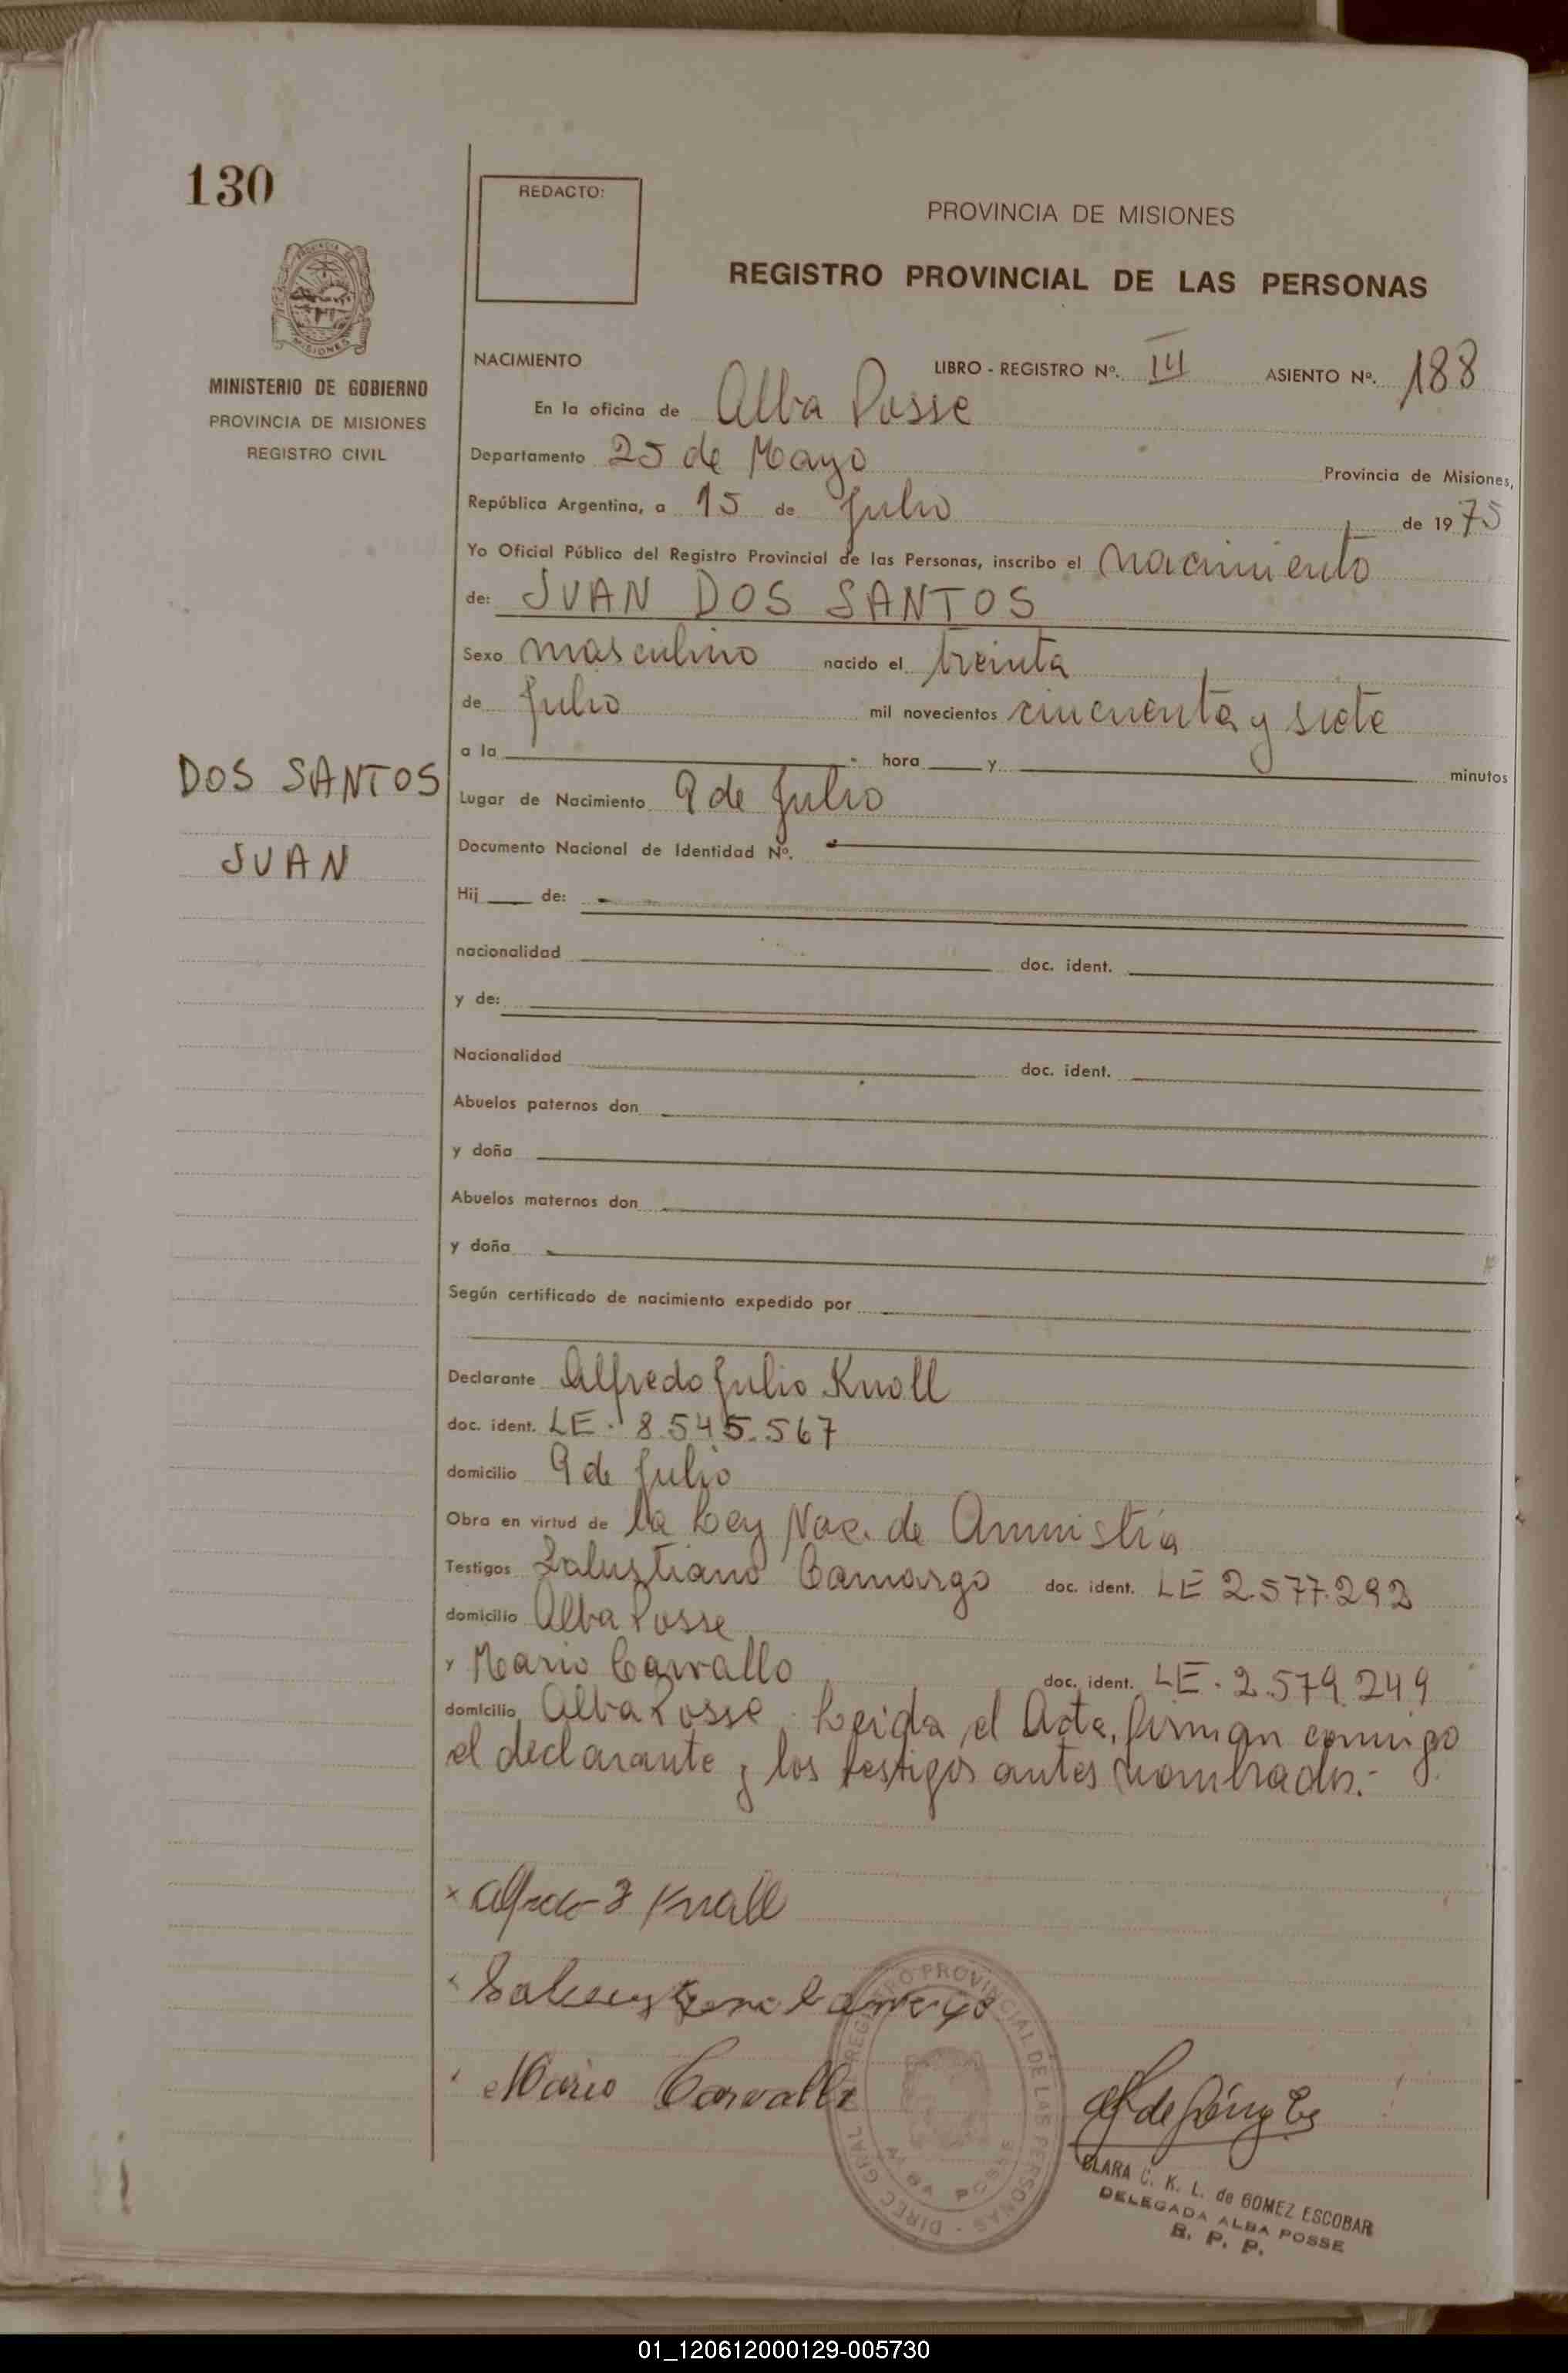 130
REDACTO:
PROVINCIA DE MISIONES
REGISTRO PROVINCIAL DE LAS PERSONAS
MISIONES
MINISTERIO DE GOBIERNO
PROVINCIA DE MISIONES
REGISTRO CIVIL
NACIMIENTO LIBRO - REGISTRO Nº. III ASIENTO Nº. 188
En la oficina de Alba Posse
Departamento 25 de Mayo Provincia de Misiones,
República Argentina, a 15 de Julio de 1975
Yo Oficial Público del Registro Provincial de las Personas, inscribo el nacimiento
de: JUAN DOS SANTOS
Sexo masculino nacido el treinta
de Julio mil novecientos cincuenta y siete
a la hora y minutos
DOS SANTOS
JUAN
Lugar de Nacimiento 9 de Julio
Documento Nacional de Identidad Nº.
Hij de:
nacionalidad doc. ident.
y de:
Nacionalidad doc. ident.
Abuelos paternos don
y doña
Abuelos maternos don
y doña
Según certificado de nacimiento expedido por
Declarante Alfredo Julio Knoll
doc. ident. LE. 8.545.567
domicilio 9 de Julio
Obra en virtud de la Ley Nac. de Amnistía
Testigos Salustiano Camargo doc. ident. LE 2.577.292
domicilio Alba Posse
y Mario Carvallo doc. ident. LE. 2.579.249
domicilio Alba Posse. Leida el Acta, firman conmigo
el declarante y los testigos antes nombrados.-
x Alfredo J Knoll
Salustiano Camargo
Mario Carvallo
DIREC. GRAL. REGISTRO PROVINCIAL DE LAS PERSONAS -
ALBA POSSE
CLARA C. K. L. de GOMEZ ESCOBAR
DELEGADA ALBA POSSE
R. P. P.
01_120612000129-005730